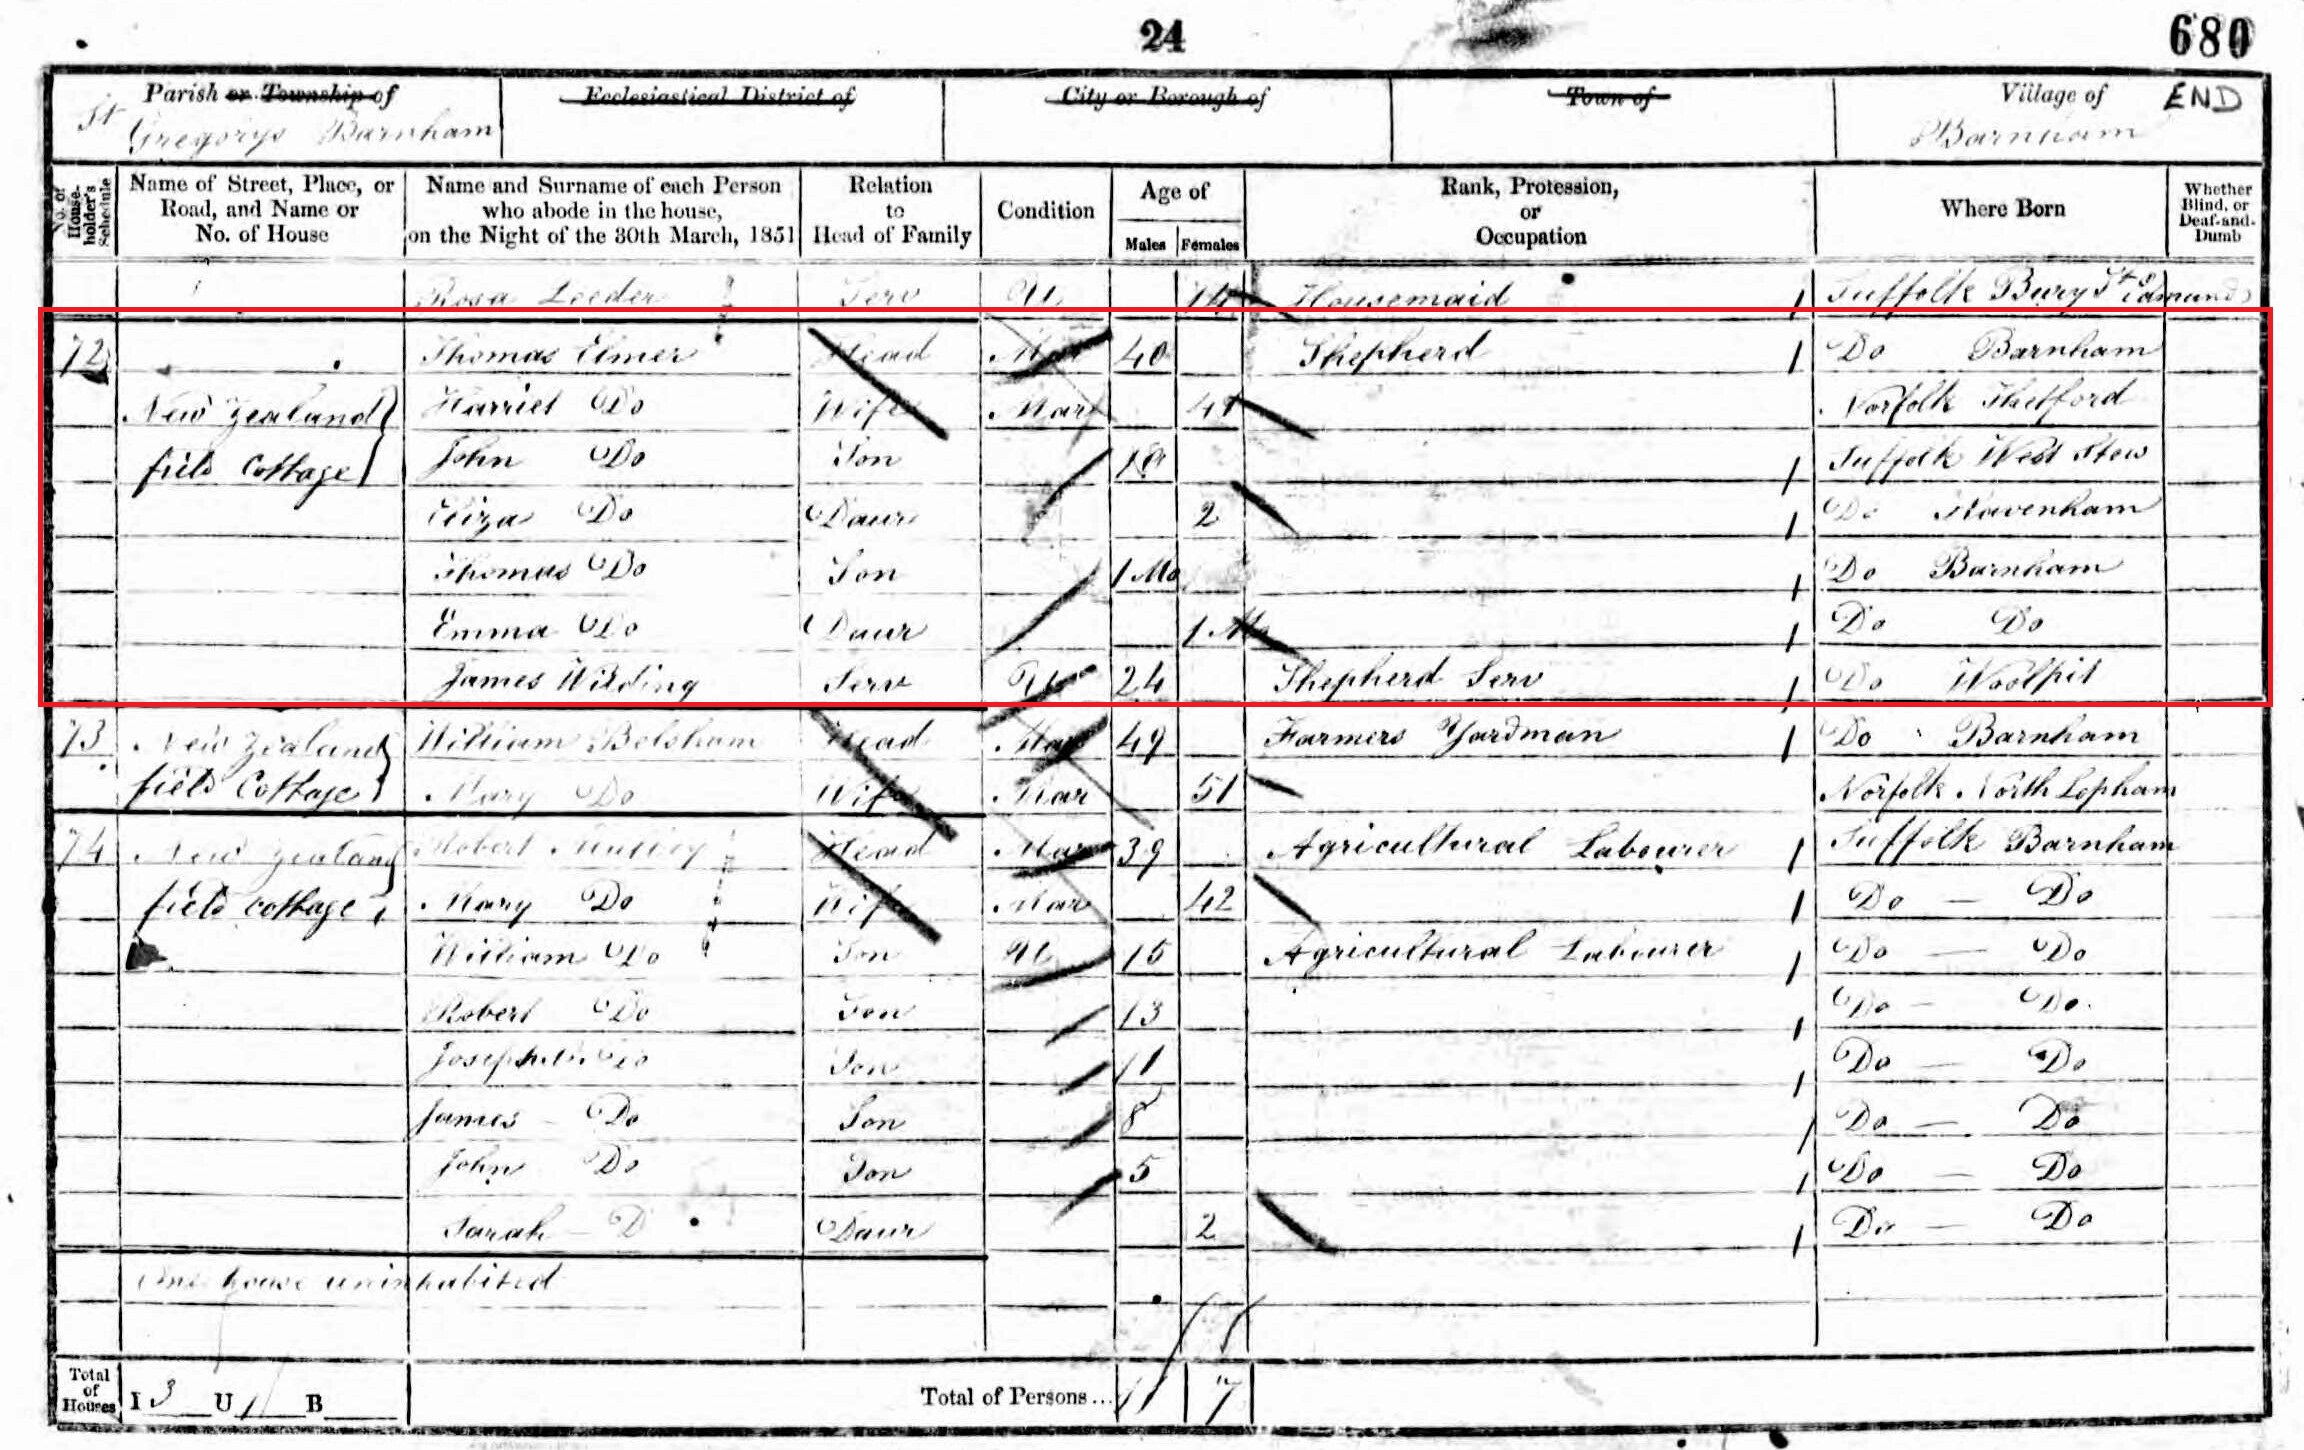 24
680
Parish or Township of
St Gregorys Barnham
Ecclesiastical District of
City or Borough of
Town of
Village of END
Barnham
No. of House-holder's Schedule
Name of Street, Place, or Road, and Name or No. of House
Name and Surname of each Person who abode in the house, on the Night of the 30th March, 1851
Relation to Head of Family
Condition
Age of
Males Females
Rank, Profession, or Occupation
Where Born
Whether Blind, or Deaf-and-Dumb
Rosa Leeder Serv U 14 Housemaid Suffolk Bury St Edmunds
72 Thomas Elmer Head Mar 40 Shepherd Do Barnham
New Zealand Harriet Do Wife Mar 41 Norfolk Thetford
field Cottage John Do Son Suffolk West Stow
Eliza Do Daur 2 Do
Thomas Do Son 1 Mo Do Barnham
Emma Do Daur 1 Mo Do Do
James Wilding Serv U 24 Shepherd Serv Do Woolpit
73 New Zealand William Belsham Head Mar 49 Farmers Yardman Do Barnham
field Cottage Mary Do Wife Mar 51 Norfolk North Lopham
74 New Zealand Robert Head Mar 39 Agricultural Labourer Suffolk Barnham
field cottage Mary Do Wife Mar 42 Do — Do
William Do Son U 15 Agricultural Labourer Do — Do
Robert Do Son 13 Do — Do
Do Son 11 Do — Do
James — Do Son 8 Do — Do
John Do Son 5 Do — Do
Sarah — D Daur 2 Do — Do
One house uninhabited
Total of Houses I 3 U 1 B
Total of Persons... 11 7